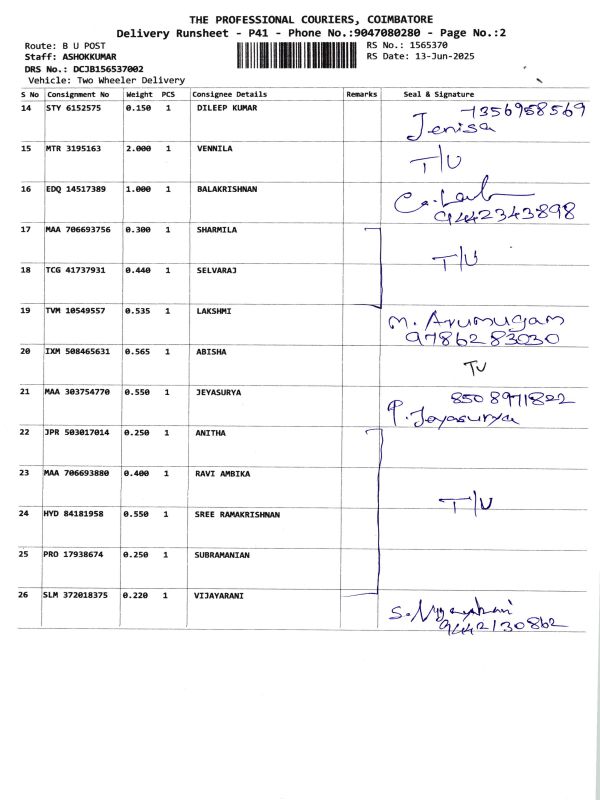 THE PROFESSIONAL COURIERS, COIMBATORE
Delivery Runsheet - P41 - Phone No.:9047080280 - Page No.:2
Route: B U POST RS No.: 1565370
Staff: ASHOKKUMAR RS Date: 13-Jun-2025
DRS No.: DCJB156537002
Vehicle: Two Wheeler Delivery
S No Consignment No Weight PCS Consignee Details Remarks Seal & Signature
14 STY 6152575 0.150 1 DILEEP KUMAR 7356958569
Jenisa
15 MTR 3195163 2.000 1 VENNILA T/U
16 EDQ 14517389 1.000 1 BALAKRISHNAN
9442343898
17 MAA 706693756 0.300 1 SHARMILA T/U
18 TCG 41737931 0.440 1 SELVARAJ
19 TVM 10549557 0.535 1 LAKSHMI M. Arumugam
9786283030
20 IXM 508465631 0.565 1 ABISHA TU
21 MAA 303754770 0.550 1 JEYASURYA 8508971822
P. Jeyasurya
22 JPR 503017014 0.250 1 ANITHA
23 MAA 706693880 0.400 1 RAVI AMBIKA T/U
24 HYD 84181958 0.550 1 SREE RAMAKRISHNAN
25 PRO 17938674 0.250 1 SUBRAMANIAN
26 SLM 372018375 0.220 1 VIJAYARANI S.
9442130862